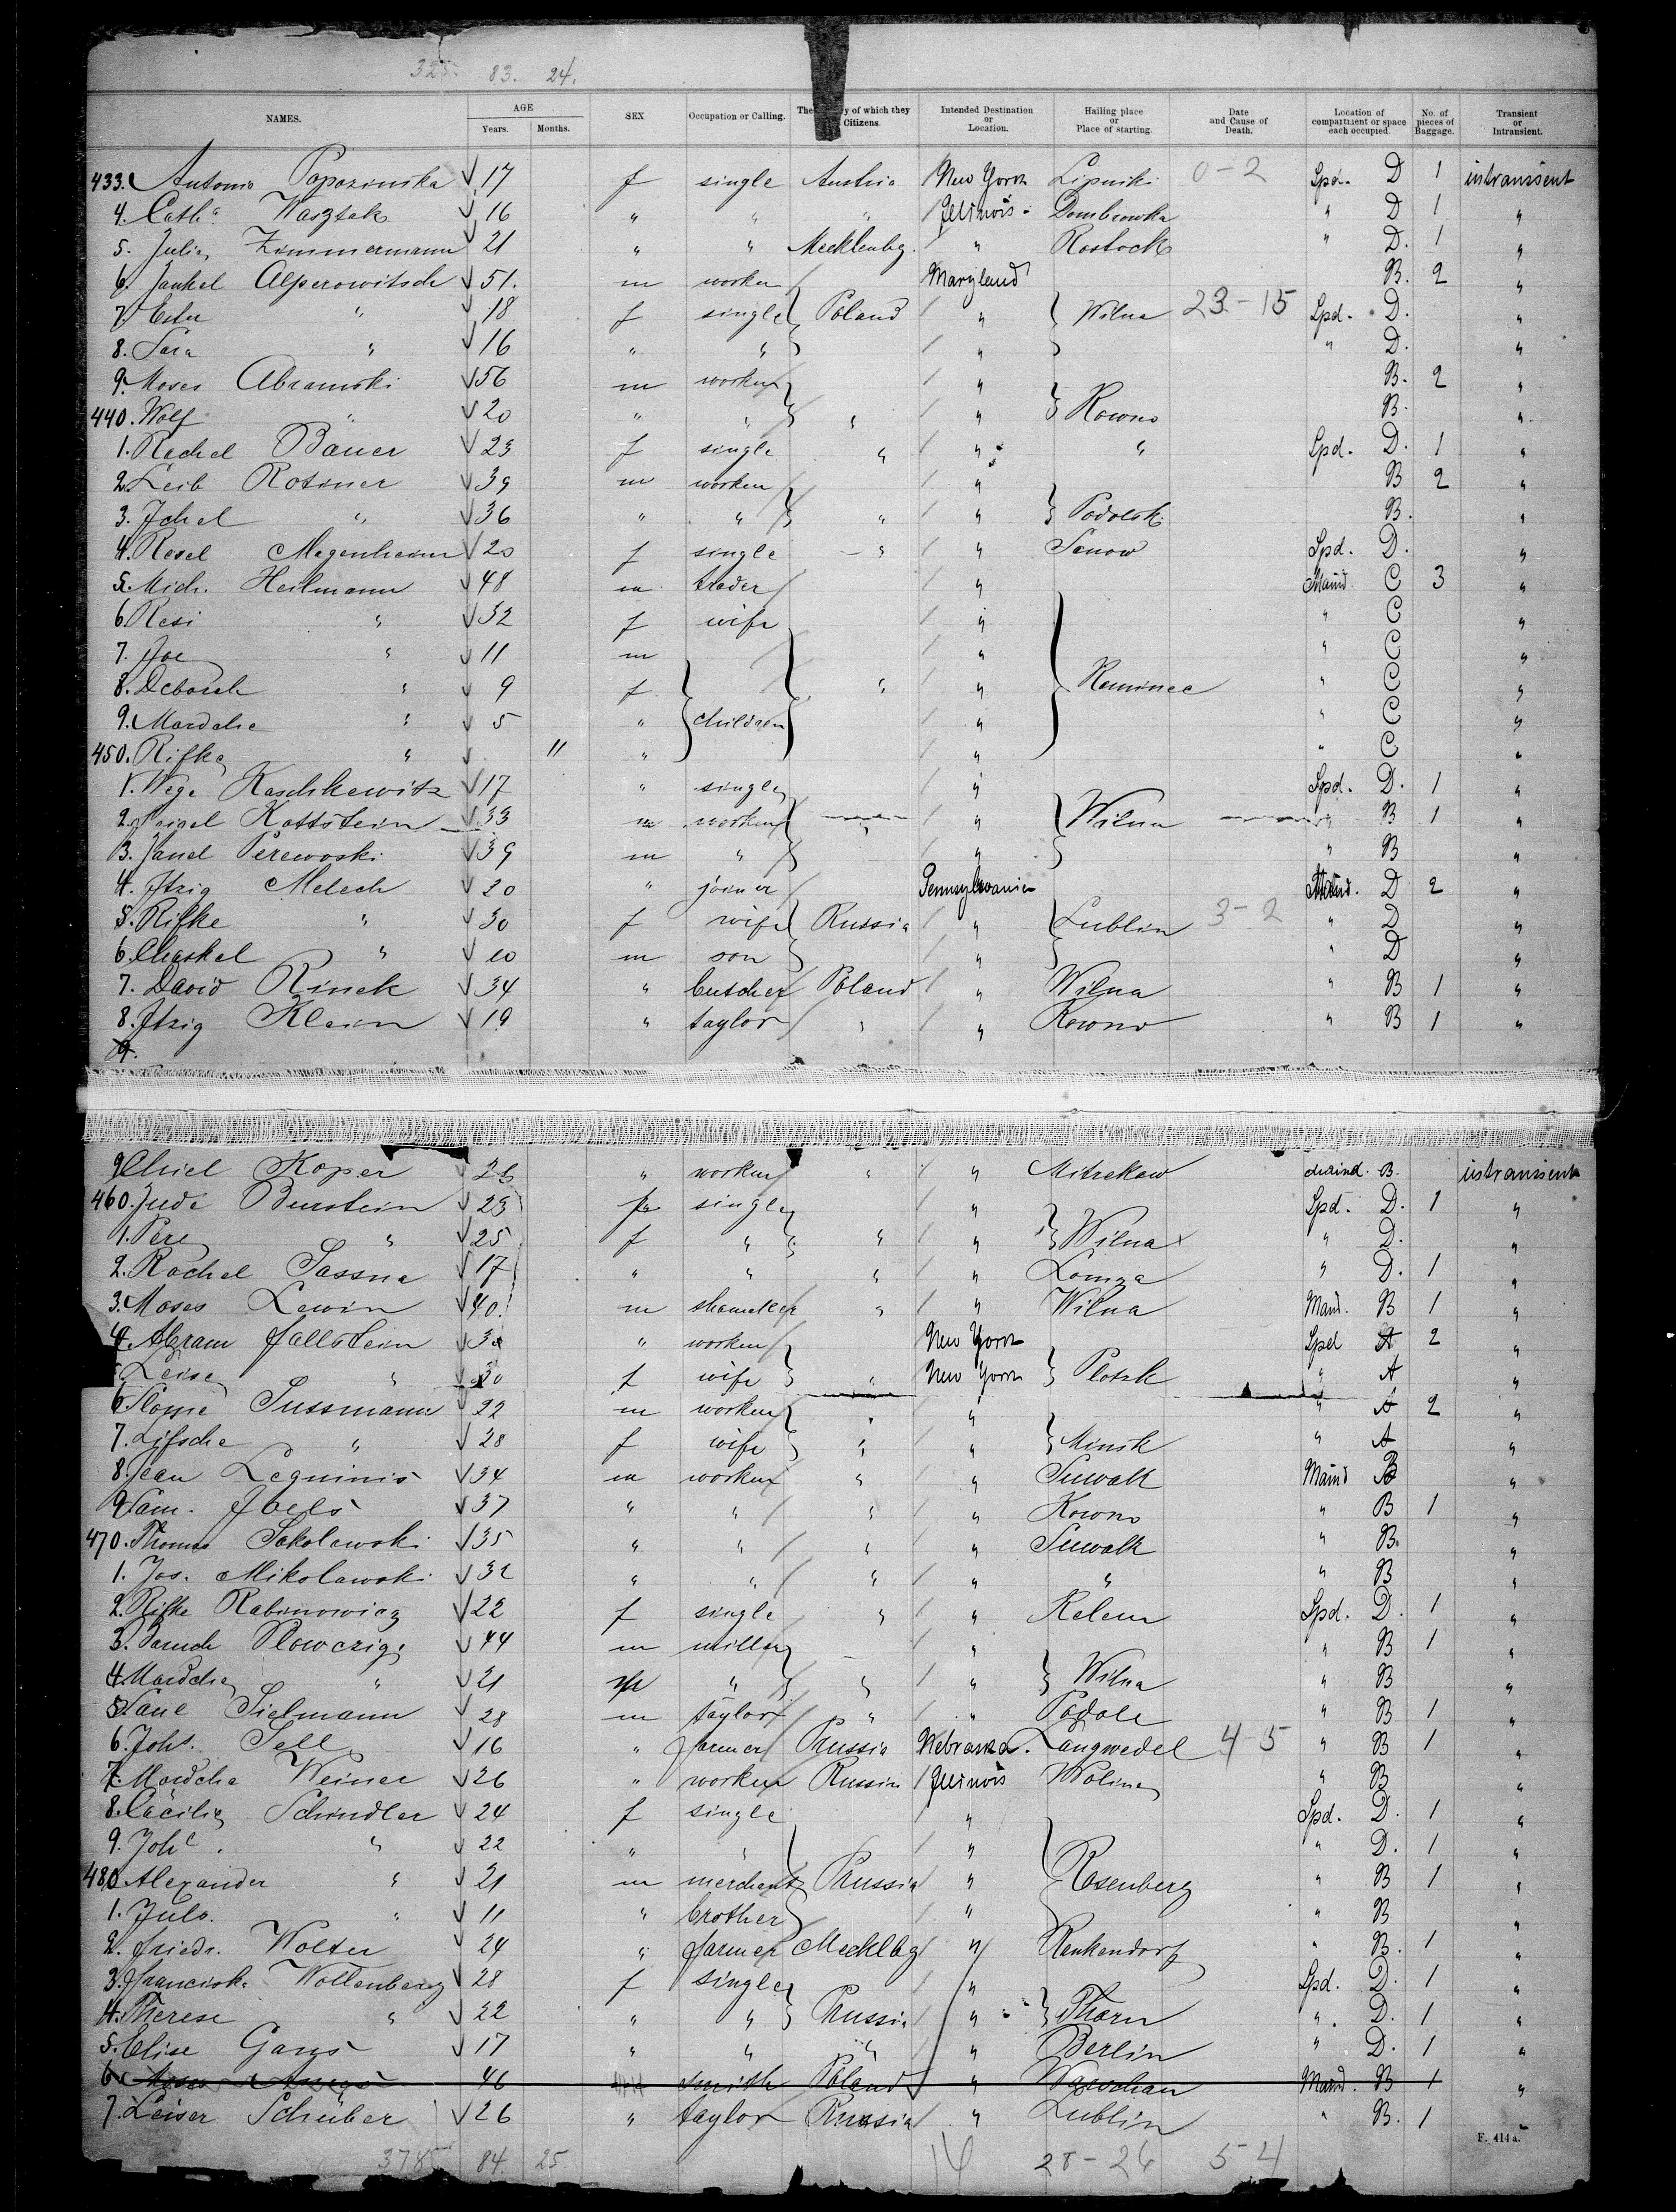 325. 83. 24.
NAMES. AGE Years. Months. SEX Occupation or Calling. The y of which they Citizens. Intended Destination or Location. Hailing place or Place of starting. Date and Cause of Death. Location of compartment or space each occupied. No. of pieces of Baggage. Transient or Intransient.
433. Antonia Popozinska 17 f single Austria New York Lipniki 0-2 Spd. D 1 intransient
4. Cath^a Wasztak 16 " " " Illinois - Dombrowka " D 1 "
5. Julia Zimmermann 21 " " Mecklenbg. " Rostock " D. 1 "
6. Jankel Alperowitsch 51. m worker Maryland B. 2 "
7. Ester " 18 f single Poland " Wilna 23-15 Spd. D. "
8. Sara " 16 " " " " D. "
9. Moses Abramski 56 m worker " B. 2 "
440. Wolf " 20 " " " " Kowno B. "
1. Rachel Bauer 23 f single " " " Spd. D. 1 "
2. Leib Rosiner 39 m worker " B 2 "
3. Ichel " 36 " " " " Podolsk B. "
4. Resel Megenheim 20 f single " " Senow Spd. D. "
5. Mich. Heilmann 48 m trader " Maind. C 3 "
6. Resi " 32 f wife " " C "
7. Joe " 11 m " " C "
8. Deborah " 9 f " " Kaminec " C "
9. Mordche " 5 " children " " C "
450. Rifke " 11 " " " C "
1. Wege Kaschkewitz 17 " single " Spd. D. 1 "
2. Kottstein 33 m worker " " Wilna " B 1 "
3. Janel Perewoski 39 m " " " B "
4. Itzig Melech 20 " joiner Pennsylvania D 2 "
5. Rifke " 30 f wife Russia " Lublin 3-2 " D "
6. Chaskel " 10 m son " " D "
7. David Rinek 34 " butcher Poland " Wilna " B 1 "
8. Itzig Klein 19 " taylor " " Kowno " B 1 "
9.
9 Chiel Koper 26 " worker " " Mitrekow Maind. B. intransient
460. Jude Burstein 23 single " Spd. D. 1 "
1. Pere " 25 f " " " Wilna " D. "
2. Rachel Sassna 17 " " " " Lomza " D. 1 "
3. Moses Lewin 40. m shomaker " " Wilna Maind. B 1 "
4. Abram Fallstein 30 " worker New York Spd A 2 "
5 Leise " 30 f wife " New York Plotzk " A "
6. Sussmann 22 m worker " " " A 2 "
7. Zifsche " 28 f wife " " Minsk " A "
8. Jean Leguinis 34 m worker " " Suwalk Maind B "
9 Sam. Joels 37 " " " " Kowno " B 1 "
470. Thomas Sokolawski 35 " " " " Suwalk " B. "
1. Jos. Mikolawski 32 " " " " " " B "
2. Rifke Rabinowicz 22 f single " " Kelem Spd. D. 1 "
3. Baruch 44 m miller " " B 1 "
4. Mordche " 21 m " " " Wilna " B "
5. Sane Sielmann 28 m taylor " " Podole " B 1 "
6. Johs. Sell 16 " farmer Prussia Nebraska. Langwedel 4-5 " B 1 "
7. Mordche Weiner 26 " worker Russia Illinois Wolina " B "
8. Cäcilie Schindler 24 f single " Spd. D. 1 "
9. Joh^e. " 22 " " " " D. 1 "
480. Alexander " 21 m merchant Prussia " Rosenberg " B 1 "
1. Juls. " 11 " brother " " B "
2. Friedr. Wolter 24 " farmer Mecklbg " Renkendorf " B. 1 "
3. Francisk. Wollenberg 28 f single " Spd. D. 1 "
4. Therese " 22 " " Prussia " Thorn " D. 1 "
5. Elise Gans 17 " " " " Berlin " D. 1 "
6. 46 smith Poland " Warschau Maind. B 1 "
7. Leiser Schuber 26 " taylor Russia " Lublin " B. 1 "
F. 414a.
3785 84. 25 14 28-26 5-4